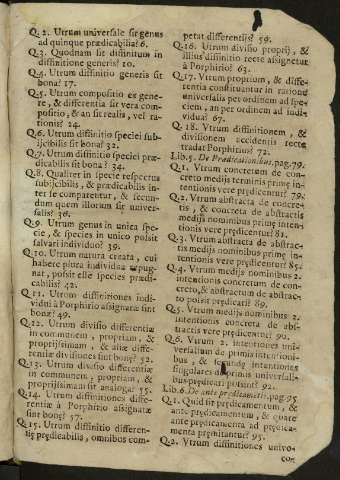 Q.2. Utrum universale sit genus
ad quinque prædicabilia? 6.
Q.3. Quodnam sit diffinitum in
diffinitione generis? 10.
Q.4. Utrum diffinitio generis sit
bona? 17.
Q.5. Utrum compositio ex gene-
re, & differentia sit vera com-
positio; & an sit realis, vel ra-
tionis? 24.
Q.6. Utrum diffinitio speciei sub-
ijcibilis sit bona? 32.
Q.7. Utrum diffinitio speciei præ-
dicabilis sit bona? 34.
Q.8. Qualiter in specie respectus
subijcibilis, & prædicabilis in-
ter se comparentur, & secun-
dum quem illorum sit univer-
salis? 36.
Q.9. Utrum genus in unica spe-
cie, & species in unico possit
salvari individuo? 39.
Q.10. Utrum natura creata, cui
habere plura individua repug-
nat, possit esse species prædi-
cabilis? 42.
Q.11. Utrum diffinitiones indi-
vidui à Porphirio assignatæ sint
bonæ? 49.
Q.12. Utrum divisio differentiæ
in communem, propriam, &
proprijssimam, & aliæ diffe-
rentiæ divisiones sint bonæ? 52.
Q.13. Utrum divisio differentiæ
in communem, propriam, &
proprijssimam sit analoga? 55.
Q.14. Utrum diffinitiones diffe-
rentiæ à Porphirio assignatæ
sint bonæ? 57.
Q.15. Utrum diffinitio differen-
tiæ prædicabilis, omnibus com-
petat differentijs? 59.
Q.16. Utrum divisio proprij, &
illius diffinitio recte assignetur
à Porphirio? 63.
Q.17. Utrum proprium, & diffe-
rentia constituantur in ratione
universalis per ordinem ad spe-
ciem, an per ordinem ad indi-
vidua? 67.
Q. 18. Utrum diffinitionem, &
divisionem accidentis recte
tradat Porphirius? 72.
Lib.5. De Prædicationibus. pag.79.
Q.1. Utrum concretum de con-
creto medijs terminis primæ in-
tentionis vere prædicentur? 79.
Q.2. Utrum abstracta de concre-
tis, & concreta de abstractis
medijs nominibus primæ inten-
tionis vere prædicentur? 81.
Q.3. Utrum abstracta de abstrac-
tis medijs nominibus primæ in-
tentionis vere prædicentur? 85.
Q.4. Utrum medijs nominibus 2.
intentionis concretum de con-
creto, & abstractum de abstrac-
to possit prædicari? 89.
Q.5. Utrum medijs nominibus 2.
intentionis concreta de abs-
tractis vere prædicentur? 90.
Q.6. Utrum 2. intentiones uni-
versalium de primis intentioni-
bus, & secundæ intentiones
singulares de primis universali-
bus prædicari possint? 92.
Lib.6. De ante prædicamentis. pag.95.
Q.1. Quid sit prædicamentum, &
ante prædicamentum, & quare
ante prædicamenta ad prædica-
menta præmitantur? 95.
Q.2. Utrum diffinitiones univo-
cor